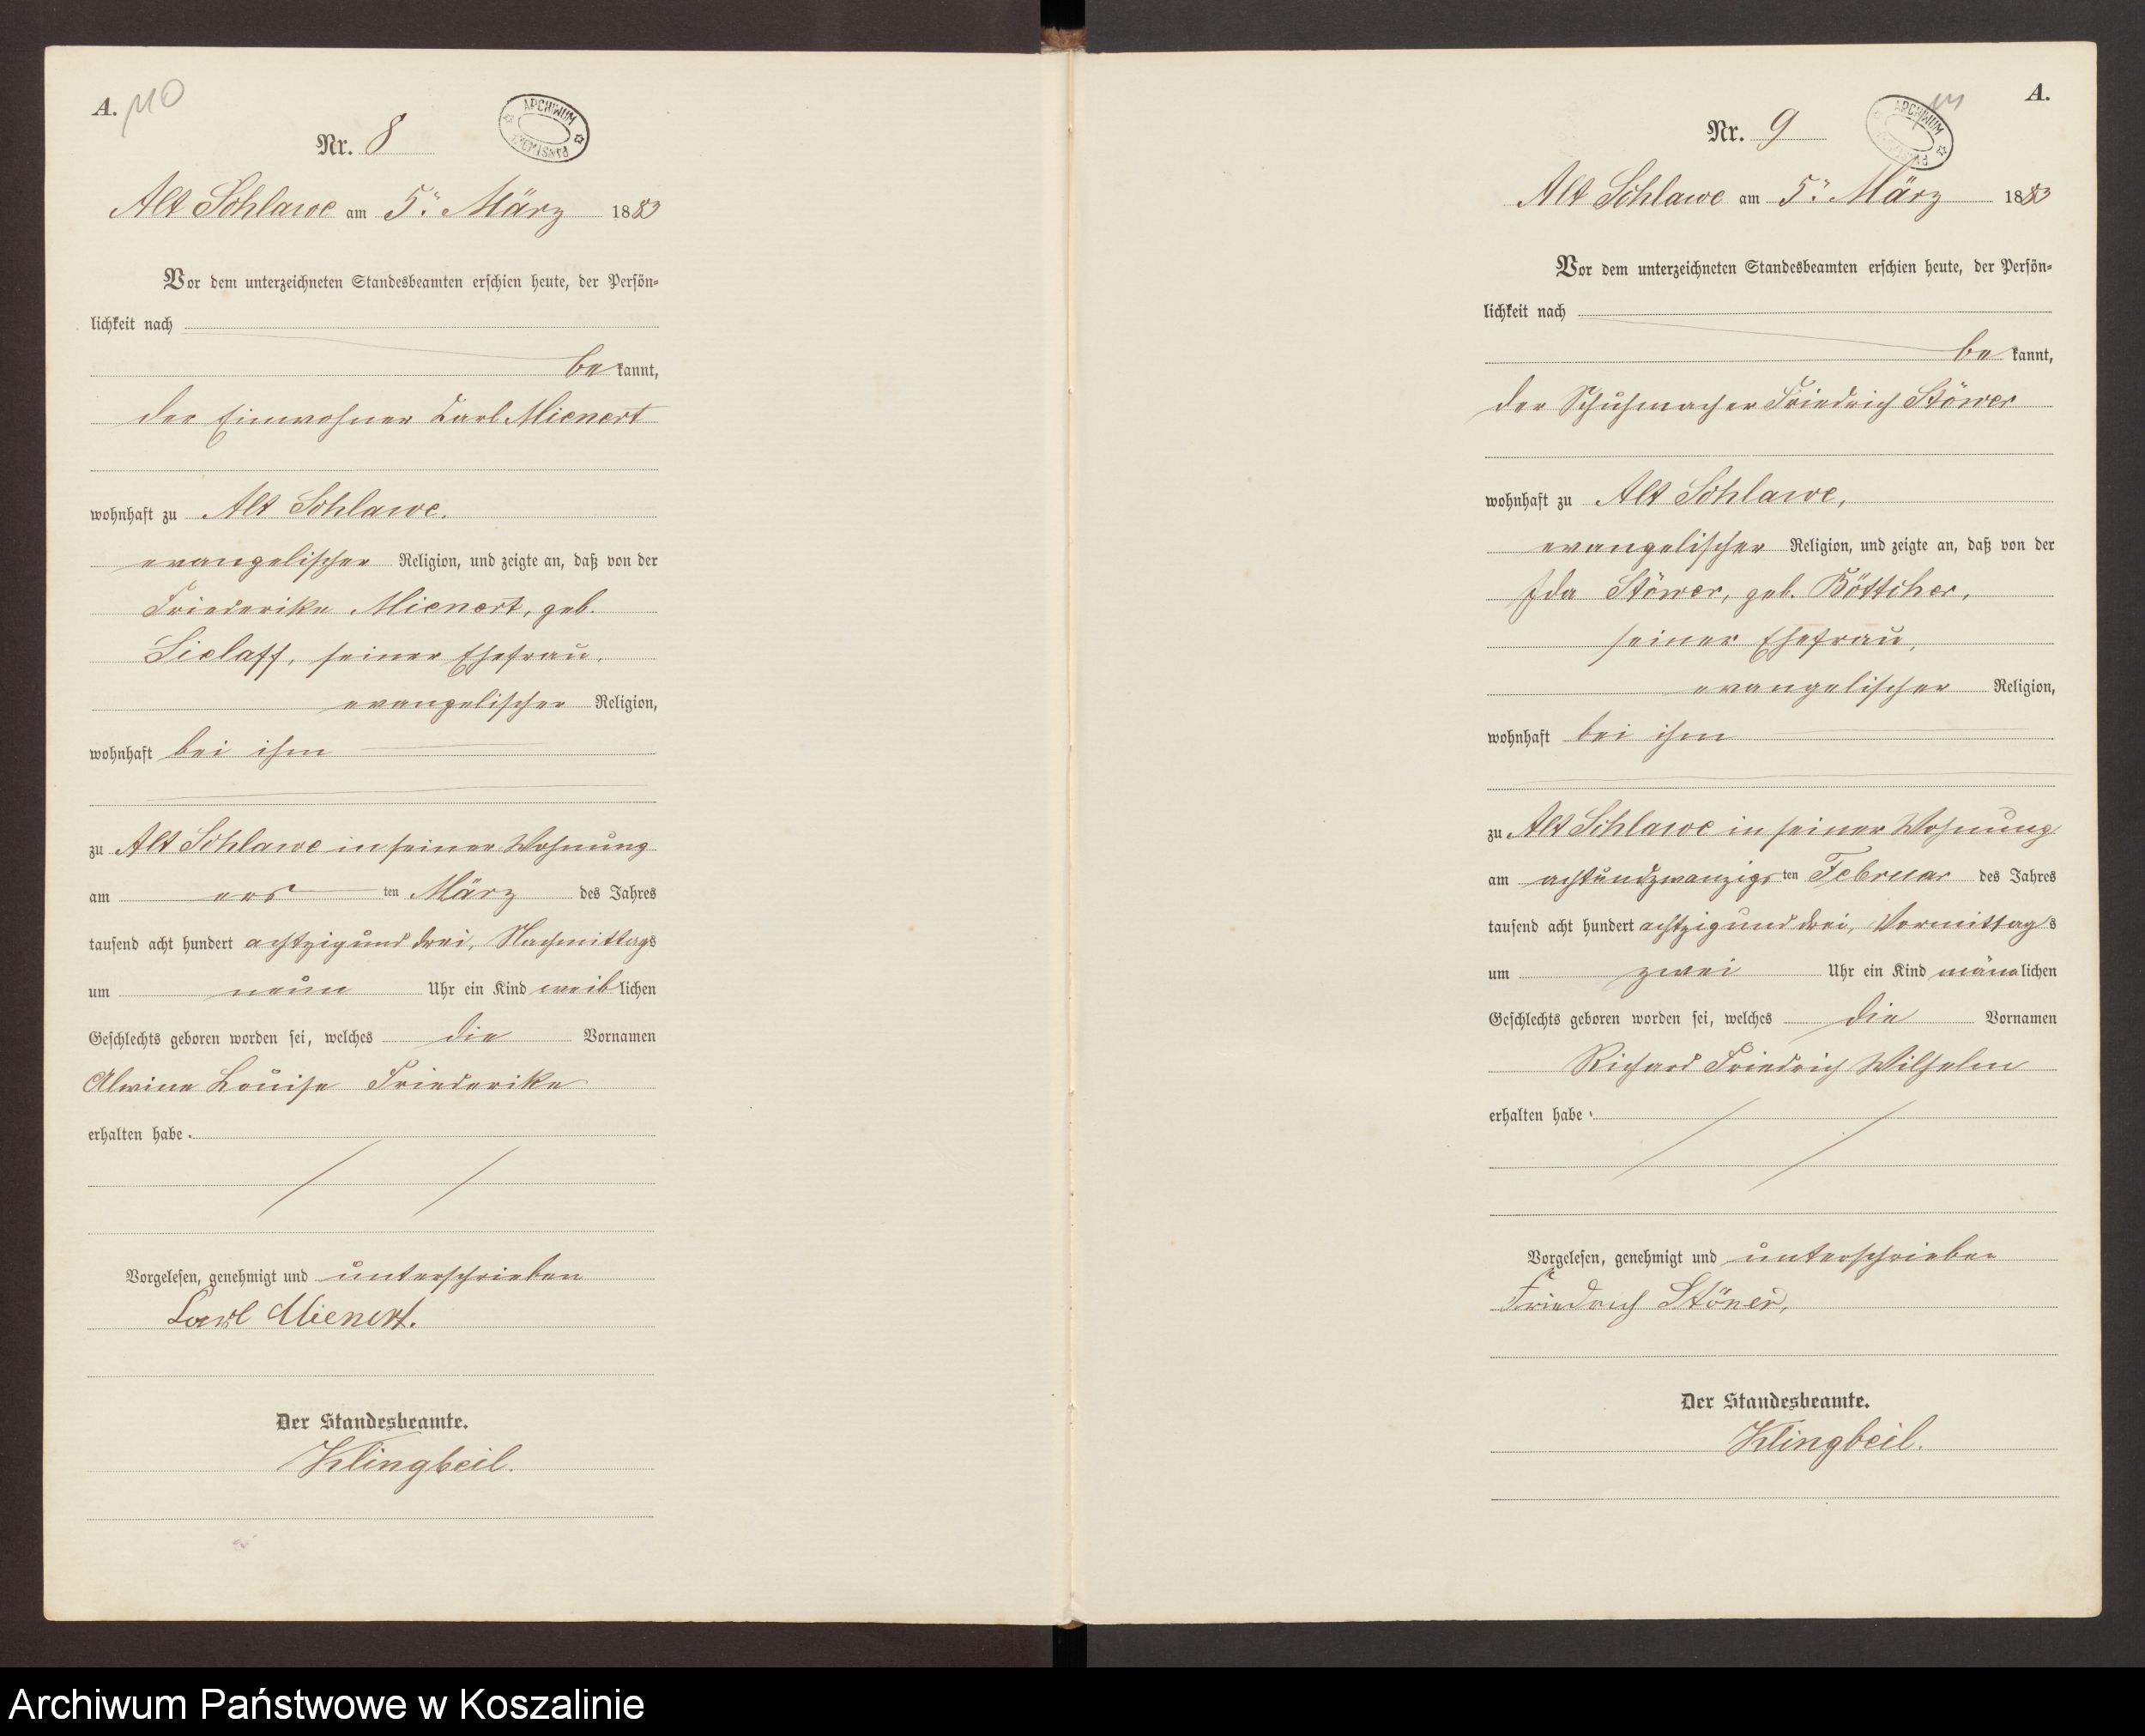 A.
110
ARCHIWUM PAŃSTWOWE
Nr. 8
Alt Schlawe am 5. März 1883
Vor dem unterzeichneten Standesbeamten erschien heute, der Persön-
lichkeit nach
bekannt,
der Einwohner Carl Mienert
wohnhaft zu Alt Schlawe,
evangelischer Religion, und zeigte an, daß von der
Friederike Mienert, geb.
Sielaff, seiner Ehefrau,
evangelischer Religion,
wohnhaft bei ihm
zu Alt Schlawe in seiner Wohnung
am ersten März des Jahres
tausend acht hundert achtzig und drei, Nachmittags
um neun Uhr ein Kind weiblichen
Geschlechts geboren worden sei, welches die Vornamen
Alwine Louise Friederike
erhalten habe.
Vorgelesen, genehmigt und unterschrieben
Carl Mienert.
Der Standesbeamte.
Klingbeil.
A.
111
ARCHIWUM
Nr. 9
Alt Schlawe am 5. März 1883
Vor dem unterzeichneten Standesbeamten erschien heute, der Persön-
lichkeit nach
bekannt,
der Schuhmacher Friedrich Stöwer
wohnhaft zu Alt Schlawe,
evangelischer Religion, und zeigte an, daß von der
Ida Stöwer, geb. Böttcher,
seiner Ehefrau,
evangelischer Religion,
wohnhaft bei ihm
zu Alt Schlawe in seiner Wohnung
am achtundzwanzigsten Februar des Jahres
tausend acht hundert achtzig und drei, Vormittags
um zwei Uhr ein Kind männlichen
Geschlechts geboren worden sei, welches die Vornamen
Richard Friedrich Wilhelm
erhalten habe.
Vorgelesen, genehmigt und unterschrieben
Friedrich Stöwer,
Der Standesbeamte.
Klingbeil.
Archiwum Państwowe w Koszalinie